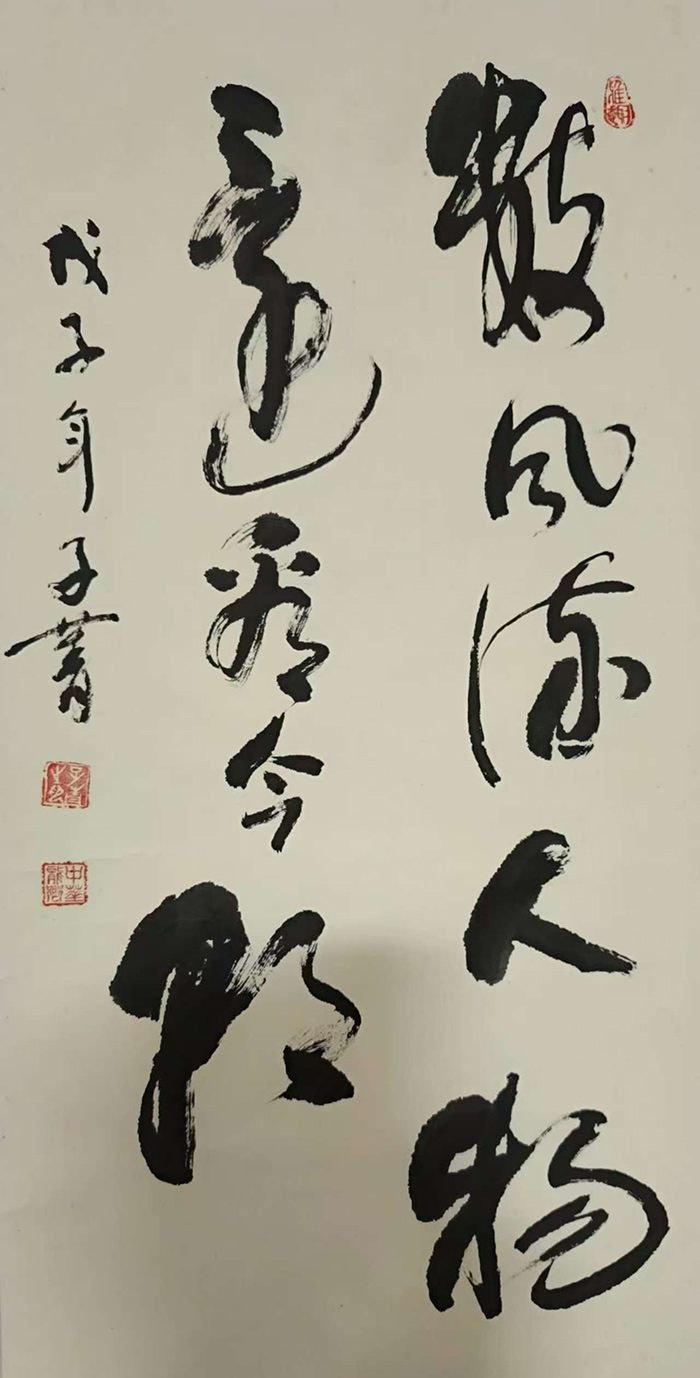 數風流人物
還看今朝
戊子年子菁